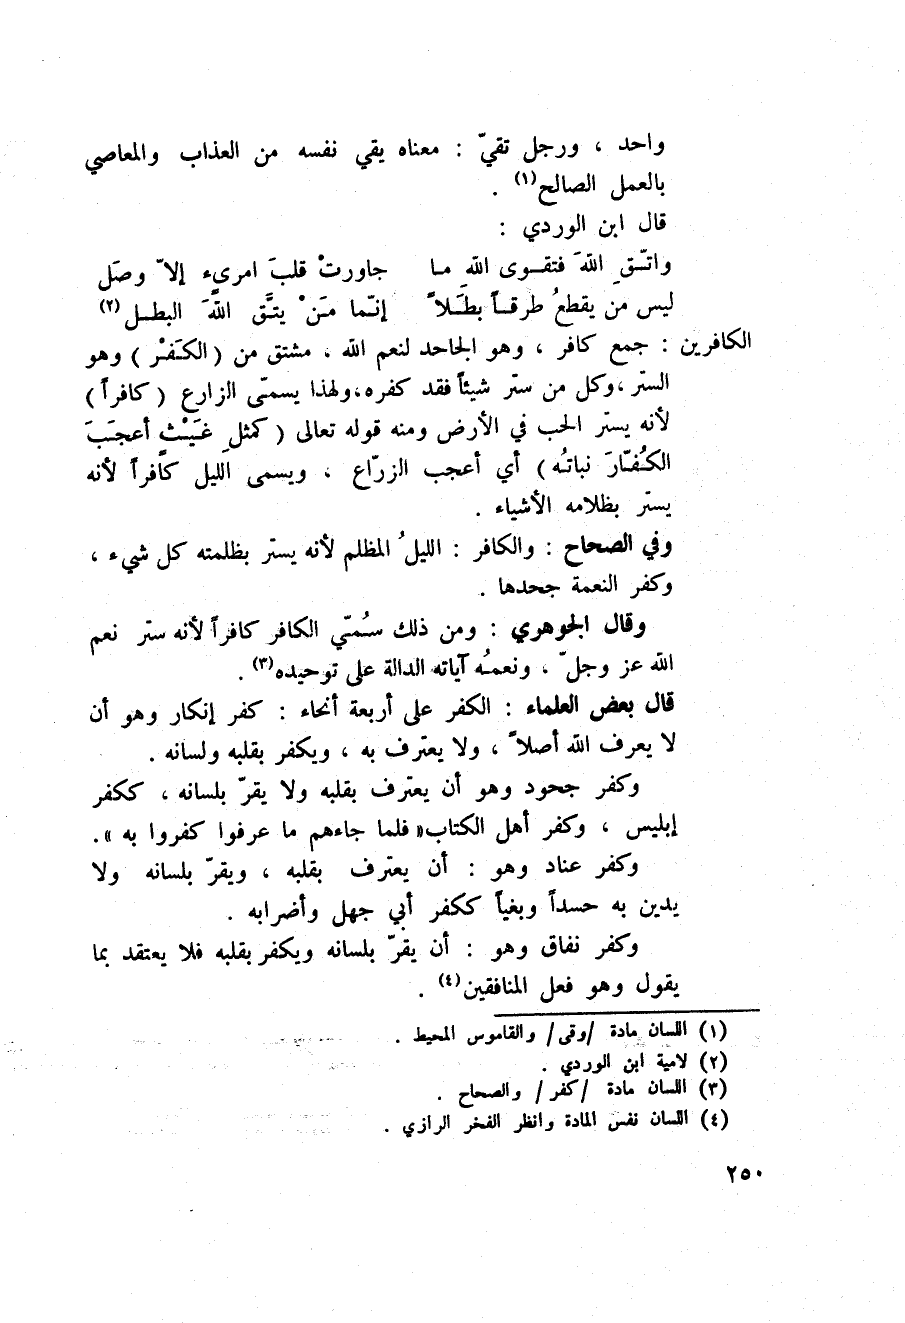 واحد ، ورجل تقيّ : معناه يقي نفسه من العذاب والمعاصي
بالعمل الصالح(١) .
قال ابن الوردي :
واتّقِ اللهَ فتقوى اللهِ ما جاورتْ قلبَ امريء إلاّ وصَل
ليس من يقطعُ طرقاً بطَلاً إنّما مَنْ يتَّقِ اللهَ البطل(٢)
الكافرين : جمع كافر ، وهو الجاحد لنعم الله ، مشتق من ( الكَفْر ) وهو
الستر ، وكل من ستر شيئاً فقد كفره ، ولهذا يسمّى الزارع ( كافراً )
لأنه يستر الحب في الأرض ومنه قوله تعالى ( كمثلِ غَيْثٍ أعجَبَ
الكُفّارَ نباتُه ) أي أعجب الزرّاع ، ويسمى الليل كافراً لأنه
يستر بظلامه الأشياء .
وفي الصحاح : والكافر : الليلُ المظلم لأنه يستر بظلمته كل شيء ،
وكفر النعمة جحدها .
وقال الجوهري : ومن ذلك سُمّي الكافر كافراً لأنه ستر نعم
الله عز وجلّ ، ونعمُه آياته الدالة على توحيده(٣) .
قال بعض العلماء : الكفر على أربعة أنحاء : كفر إنكار وهو أن
لا يعرف الله أصلاً ، ولا يعترف به ، ويكفر بقلبه ولسانه .
وكفر جحود وهو أن يعترف بقلبه ولا يقرّ بلسانه ، ككفر
إبليس ، وكفر أهل الكتاب « فلما جاءهم ما عرفوا كفروا به » .
وكفر عناد وهو : أن يعترف بقلبه ، ويقرّ بلسانه ولا
يدين به حسداً وبغياً ككفر أبي جهل وأضرابه .
وكفر نفاق وهو : أن يقرّ بلسانه ويكفر بقلبه فلا يعتقد بما
يقول وهو فعل المنافقين(٤) .
(١) اللسان مادة /وقى/ والقاموس المحيط .
(٢) لامية ابن الوردي .
(٣) اللسان مادة /كفر/ والصحاح .
(٤) اللسان نفس المادة وانظر الفخر الرازي .
٢٥٠